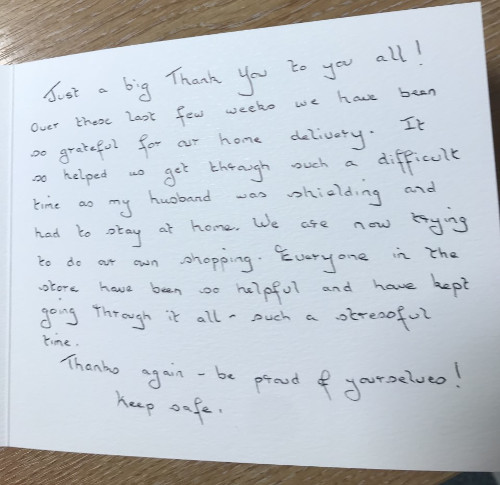 Just a big Thank You to you all!
Over these last few weeks we have been
so grateful for our home delivery. It
so helped us get through such a difficult
time as my husband was shielding and
had to stay at home. We are now trying
to do our own shopping. Everyone in the
store have been so helpful and have kept
going through it all - such a stressful
time.
Thanks again - be proud of yourselves!
Keep safe.